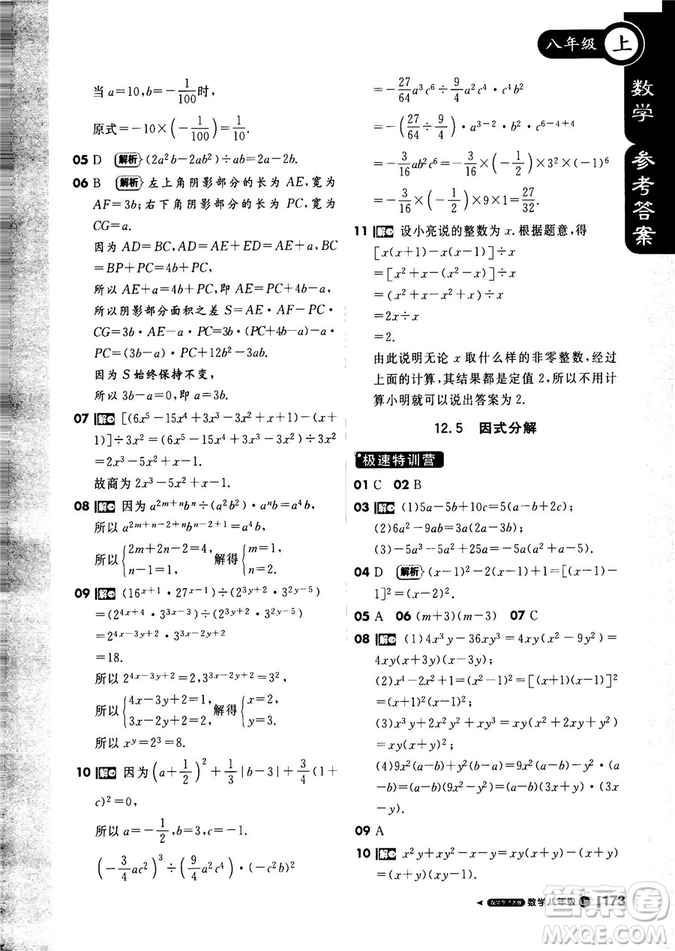 八年级 上
数学 参考答案
当a=10,b=-1/100时,
原式=-10×(-1/100)=1/10.
05 D 解析 (2a²b-2ab²)÷ab=2a-2b.
06 B 解析 左上角阴影部分的长为AE,宽为
AF=3b;右下角阴影部分的长为PC,宽为
CG=a.
因为AD=BC,AD=AE+ED=AE+a,
BC=BP+PC=4b+PC,
所以AE+a=4b+PC,即AE-PC=4b-a,
所以阴影部分面积之差S=AE·AF-PC·
CG=3b·AE-a·PC=3b(PC+4b-a)-a·
PC=(3b-a)PC+12b²-3ab.
因为S始终保持不变,
所以3b-a=0,即a=3b.
07 解 [(6x⁵-15x⁴+3x³-3x+1)-(x+
1)]÷3x²=(6x⁵-15x⁴+3x³-3x²)÷
3x²=2x³-5x²+x-1.
故商为2x³-5x²+x-1.
08 解 因为a²ᵐ⁺ⁿbⁿ÷(a²bⁿ⁻²)ⁿ=a⁴b,
{2m+2n-2=4, {m=1,
所以 解得
{n-1=1, {n=2.
09 解 (16ˣ⁺¹·27ˣ⁻¹)÷(2³ʸ⁺²·3²ʸ⁻⁵)
=(2⁴ˣ⁺⁴·3³ˣ⁻³)÷(2³ʸ⁺²·3²ʸ⁻⁵)
=2⁴ˣ⁻³ʸ⁺²·3³ˣ⁻²ʸ⁺²
=18.
{4x-3y+2=1, {x=2,
所以 解得
{3x-2y+2=2, {y=3.
所以yˣ⁻²=3²=3.
10 解 因为(a+1/2)²+1/3|b-3|+(1+
c)²=0,
所以a=-1/2,b=3,c=-1.
(-3/4ac²)³÷(9/4a²c⁴)·(-12b²c²)
=-27/64a³c⁶÷9/4a²c⁴·
=-(27/64÷9/4·)·a³⁻²·b²·c⁶⁻⁴⁺⁴
=-3/16
=-3/16×(-1/2)×9×1=27/32.
11 解 设小亮说的整数为x.根据题意,得
[x(x+1)-x(x-1)]÷x
=[x²+x-(x²-x)]÷x
=(x²+x-x²+x)÷x
=2x÷x
=2.
由此说明无论x取什么样的非零整数,经过
上面的计算,其结果都是定值2,所以不用计
算小明就可以说出答案为2.
12.5 因式分解
极速特训营
01 C 02 B
03 解 (1)5a-5b+10=5(a-b+2);
(2)6a²-9ab=3a(2a-3b);
(3)-5x²+5x=-5x(x-1).
04 D 解析 (x-1)²-2(x-1)+1=[(x-1)-
1]²=(x-2)².
05 A 06 (m+3)(m-3) 07 C
08 解 (1)4x³y-36xy=4xy(x²-9)=
4xy(x-3)(x+3);
(2)(x-1)²-2(x-1)+1=[(x-1)-
1]²=(x-2)²;
(3)x³y+2x²y²+xy³=xy(x²+2xy+y²)=
xy(x+y)²;
(4)9x²(a-b)+y²(b-a)=9x²(a-b)-
y²(a-b)=(a-b)(9x²-y²)=(a-b)(3x+
y)(3x-y).
09 A
10 解 x²y+xy²-x-y=xy(x+y)-(x+y)=
数学八年级 上 173
答案